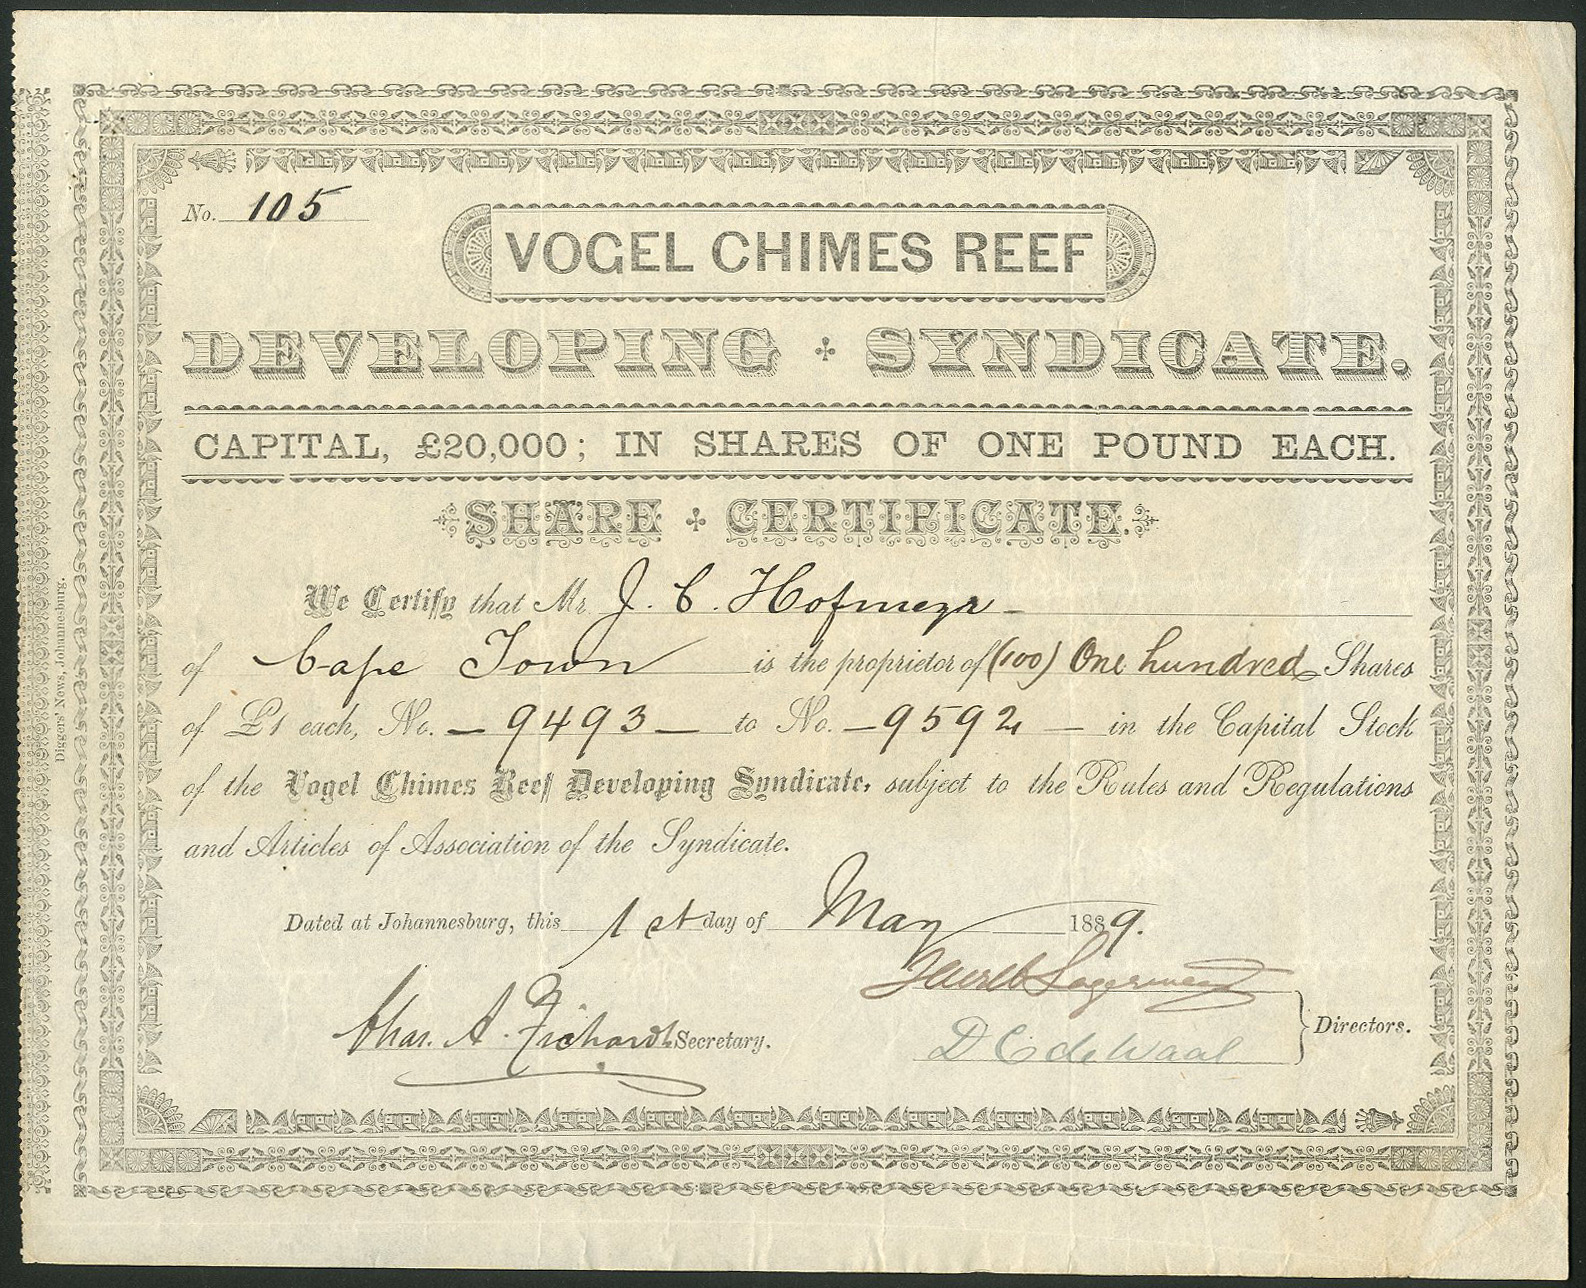 No. 105
VOGEL CHIMES REEF
DEVELOPING SYNDICATE.
CAPITAL, £20,000; IN SHARES OF ONE POUND EACH.
SHARE CERTIFICATE.
We Certify that Mr. J. C. Hofmeyr
of Cape Town is the proprietor of (100) One hundred Shares
of £1 each, No. 9493 to No. 9592 in the Capital Stock
of the Vogel Chimes Reef Developing Syndicate, subject to the Rules and Regulations
and Articles of Association of the Syndicate.
Dated at Johannesburg, this 1st day of May 1889.
Chas. A. Secretary.
D C de Waal
Directors.
Diggers' News, Johannesburg.